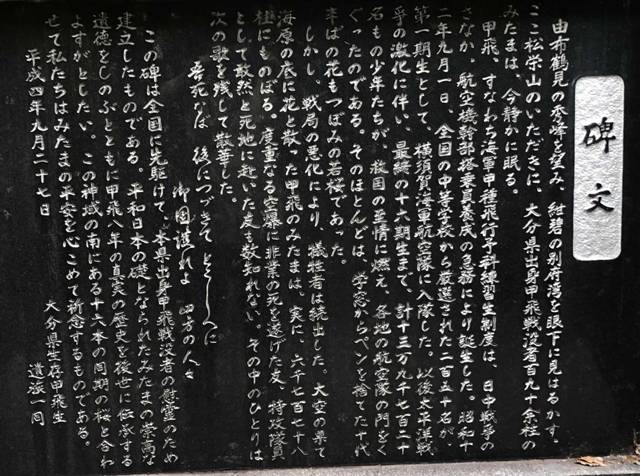 碑文
由布鶴見の秀峰を望み、紺碧の別府湾を眼下に見はるかす、
ここ松栄山のいただきに、大分県出身甲飛戦没者百九十余柱の
みたまは、今静かに眠る。
甲飛、すなわち海軍甲種飛行予科練習生制度は、日中戦争の
さなか。航空機幹部搭乗員養成の急務により誕生した。昭和十
二年九月一日、全国の中等学校から厳選された二百五十名が
第一期生として、横須賀海軍航空隊に入隊した。以後太平洋戦
争の激化に伴い、最終の十六期生まで、計十三万九千七百二十
名もの少年たちが、救国の至情に燃え、各地の航空隊の門をく
ぐったのである。そのほとんどは、学窓からペンを捨てた十代
半ばの花もつぼみの若桜であった。
しかし、戦局の悪化により、犠牲者は続出した。大空の果て
海原の底に花と散った甲飛のみたまは、実に、六千七百七十八
柱にものぼる。度重なる空爆に非業の死を遂げた友、特攻隊員
として敢然と死地に赴いた友も数知れない。その中のひとりは
次の歌を残して散華した。
吾死なば 後につづきてとこしへに
御国護れよ 四方の人々
この碑は全国に先駆けて、本県出身甲飛戦没者の慰霊のため
建立したものである。平和日本の礎となられたみたまの崇高な
遺徳をしのぶとともに甲飛八年の真実の歴史を後世に伝承する
よすがとしたい。この神域の南にある十六本の同期の桜と合わ
せて私たちはみたまの平安を心こめて祈念するものである。
平成四年九月二十七日
大分県生存甲飛生
遺族一同